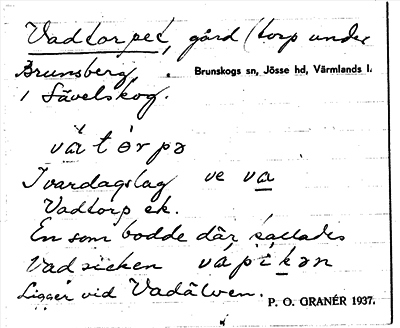 Vadtorpet, gård (torp under
Brunsberg, . Brunskogs sn, Jösse hd, Värmlands l.
i Sävelskog.
vàtòrpə
I vardagslag ve va
Vadtorp ek.
En som bodde där kallades
Vad
Ligger vid Vadälven. P. O. GRANÉR 1937.